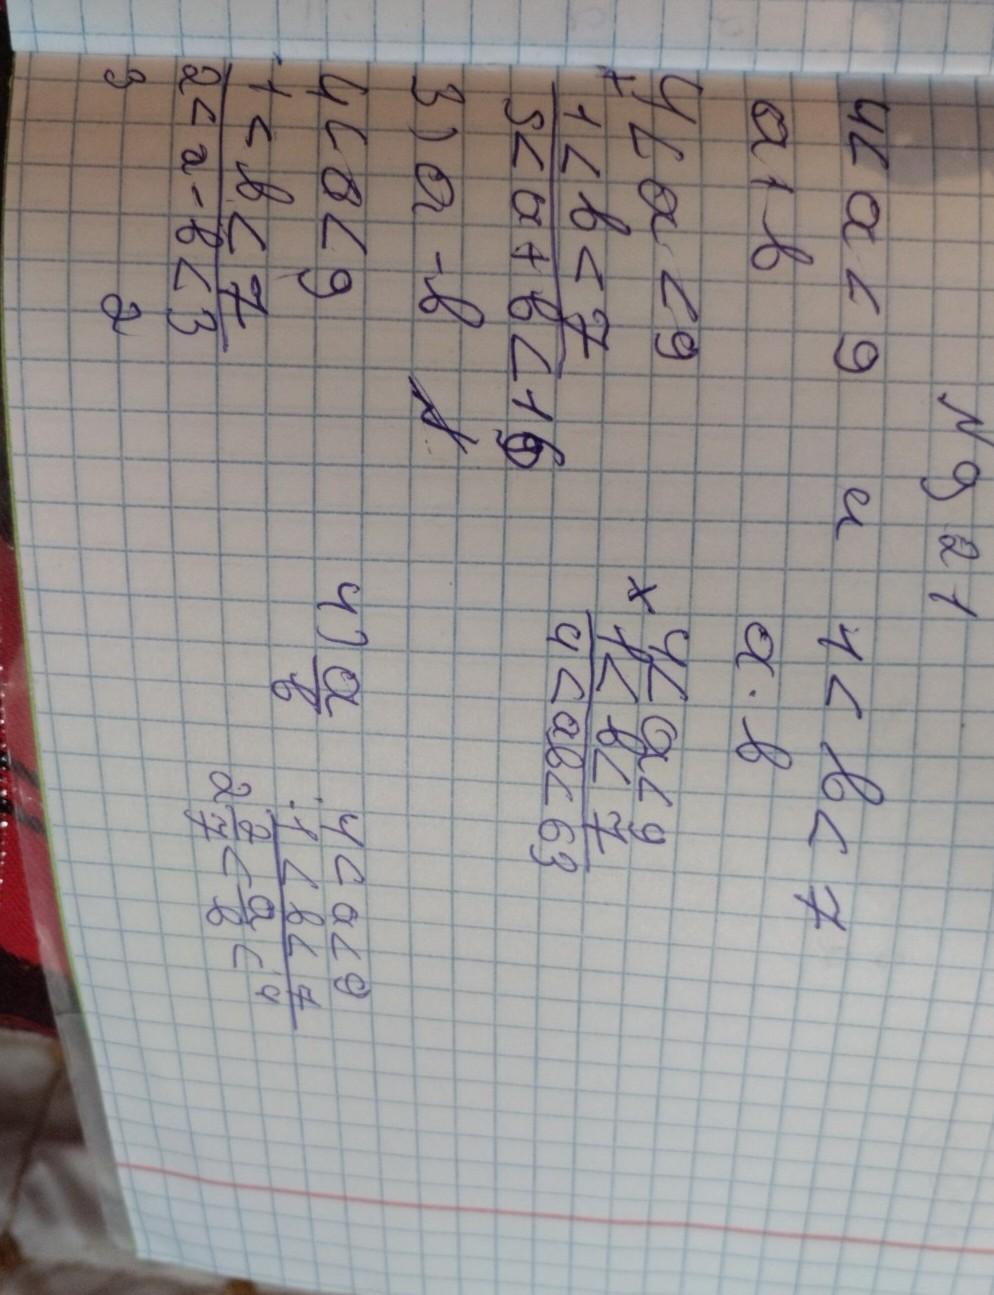 N 921
4 < a < 9 и 1 < b < 7
a + b
4 < a < 9
+
1 < b < 7
5 < a + b < 16
a · b
4 < a < 9
×
1 < b < 7
4 < ab < 63
3) a - b
4 < a < 9
- 1 < b < 7
2 < a - b < 3
3 2
4) a/b
: 4 < a < 9
: 1 < b < 7
2 2/7 < a/b < 4